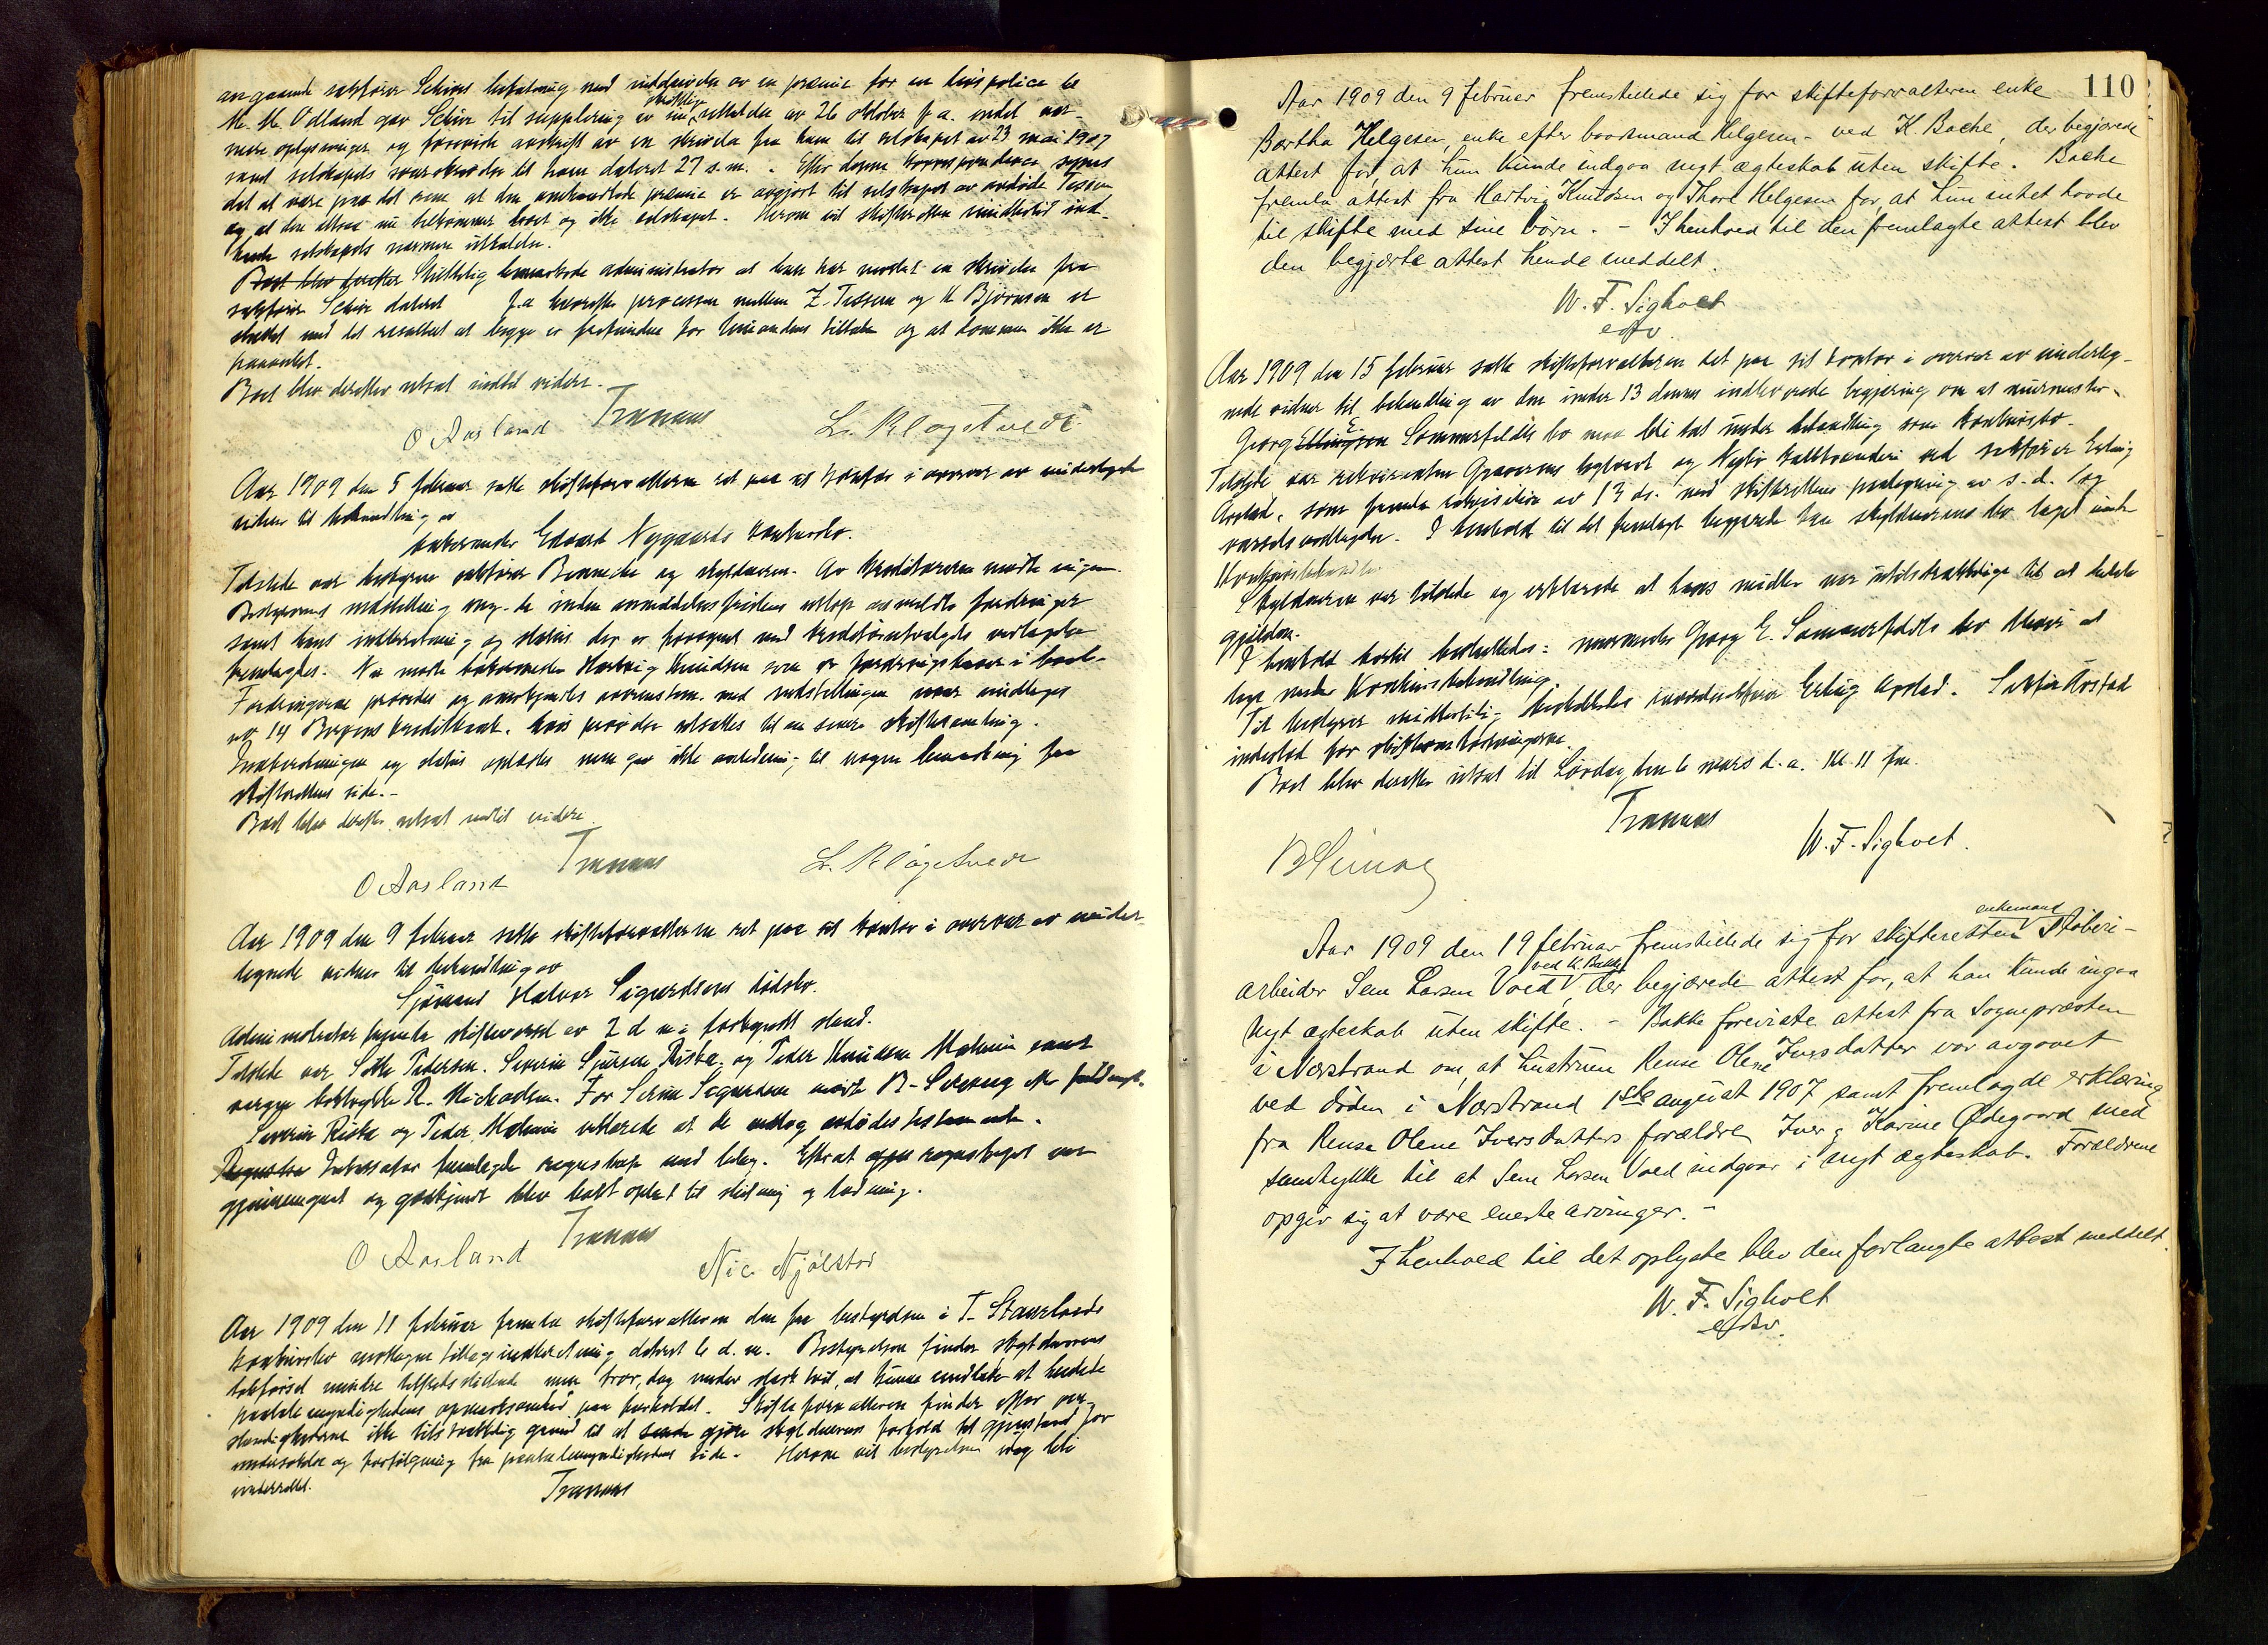 angaaende sakfører Schiøs befatning med inddrivelse av en præmie for en livspolice til
M. M. Ødland gav Schiøs til supplering av sin skriftlig uttalelse av 26 oktober f. a. endel nær-
mere oplysninger og foreviste avskrift av en skrivelse fra ham til selskapet av 23 mai 1907
samt selskapets svarskrivelse til ham dateret 27 s. m. . Efter denne korrespondance synes
det at være paa det rene at den omhandlede præmie er avgjort til selskapet av avdøde Tessem
og at den altsaa nu tilkommer boet og ikke selskapet. Herom vil skifteretten imidlertid ind-
hente selskapets nærmere uttalelse.
Boet blev derefter Skriftlig bemærkede administrator at han har mottat en skrivelse fra
sakfører Schiøs dateret f. a. hvorefter processen mellem Z. Tessem og K Bjørnsen er
sluttet med det resultat at begge er frifundne for hinandens tiltale og at dommen ikke er
paaanket.
Boet blev derefter utsat indtil videre.
O Aasland Tranaas L. Kløgetvedt
Aar 1909 den 5 februar satte skifteforvalteren ret paa sit kontor i overvær av undertegnede
vidner til behandling av
bakermester Edvard Nygaards konkursbo.
Tilstede var bestyreren sakfører Bennecke og skyldneren. Av kreditorerne mødte ingen.
Bestyrerens indstilling ang. de inden anmeldelsesfristens utløp anmeldte fordringer
samt hans indberetning og status der er forsynet med kreditorutvalgets vedtagelse
fremlagdes. Nu mødte bakermester Hartvig Knudsen som er fordringshaver i boet.
Fordringerne prøvedes og anerkjendtes overensstem. med indstillingen unntagen
nr 14 Bergens Kreditbank, hvis prøvelse utsattes til en senere skiftesamling.
Indberetningen og status oplæstes men gav ikke anledning til nogen bemerkning fra
skifterettens side.-
Boet blev derefter utsat indtil videre.
O Aasland Tranaas L. Kløgetvedt
Aar 1909 den 9 februar satte skifteforvalteren ret paa sit kontor i overvær av under-
tegnede vidner til behandling av
Sjømand Halvor Sigurdsens dødsbo.
Administrator fremla skiftevarsel av 2 d. m. i forkynt stand.
Tilstede var Sofie Pedersen. Severin Sjursen Riska og Peder Knudsen Malmin samt
verge boktrykker R. Michaelsen. For Serine Sigurdsen møtte B. Selvaag efter fuldmagt.
Severin Riska og Peder Malmin erklærede at de vedtog avdødes testamente.
Regnska Inkassator fremlagde regnskap med bilag. Efterat opg regnskapet var
gjennemgaat og godkjendt blev boet optat til slutning og lodning.
O Aasland Tranaas Nic Njølstad
Aar 1909 den 11 februar fremla skifteforvalteren den fra bestyrelsen i T. Stavelands
konkursbo mottagne tillægsindberetning dateret 6 d. m. Bestyrelsen finder skyldnerens
bokførsel mindre tilfredsstillende men tror, dog under sterk tvil, at kunne undlate at henlede
paatalemyndighedens opmerksomhed paa forholdet. Skifteforvalteren finder efter om-
stændighederne ikke tilstrækkelig grund til at sende gjøre skyldnerens forhold til gjenstand for
undersøkelse og forfølgning fra paatalemyndighedens side. Herom vil bestyrelsen idag bli
underrettet.
Tranaas
110
Aar 1909 den 9 februar fremstillede sig for skifteforvalteren enke
Bertha Helgesen, enke efter baadsmand Helgesen - ved K. Bache, der begjærede
attest for, at hun kunde indgaa nyt ægteskab uten skifte. Bache
fremla attest fra Hartvig Knudsen og Thore Helgesen for, at hun intet havde
til skifte med sine børn. - I henhold til den fremlagte attest blev
den begjærte attest hende meddelt.
W. F. Sigholt
efdv
Aar 1909 den 15 februar satte skifteforvalteren ret paa sit kontor i overvær av underteg-
nede vidner til behandling av den under 13 dennes indleverede begjæring om at murmester
Georg Ellingsen E. Sommerfeldts bo maa bli tat under behandling som konkursbo.
Tilstede var rekvirenten Graverens teglverk og Nesbø kalkbrænderi ved sakfører Erling
Aarstad, som fremla rekvisition av 13 ds. med skifterettens paategning av s. d. og
varselsvedtagelse. I henhold til det fremlagte begjærede han skyldnerens bo taget under
Konkursbehandling.
Skyldneren var tilstede og erklærede at hans midler var utilstrækkelige til at dække
gjælden.
I henhold hertil besluttedes: murmester Georg E. Sommerfeldts bo blir at
tage under Konkursbehandling.
Til bestyrer midlertidig beskikkedes overretssakfører Erling Aarstad. Sakfører Aarstad
indestod for skifteomkostningerne.
Boet blev derefter utsat til Lørdag den 6 mars d. a. kl. 11 fm.
Tranaas
W. F. Sigholt.
Aar 1909 den 19 februar fremstillede sig for skifteretten enkemand Støberi-
arbeider Sem Larsen Voed ved K. Bakke, der begjærede attest for, at han kunde ingaa
nyt ægteskab uten skifte. - Bakke foreviste attest fra Sognepræsten
i Nerstrand om, at hustruen Rense Olene Iversdatter var avgaaet
ved døden i Nerstrand 1ste august 1907 samt fremlagde erklæring
fra Rense Olene Iversdatters forældre, Iver g Karine Ødegaard med
samtykke til at Sem Larsen Voed indgaar i nyt ægteskab. Forældrene
opgir sig at være eneste arvinger. -
I henhold til det oplyste blev den forlangte attest meddelt.
W. F. Sigholt
efdv.